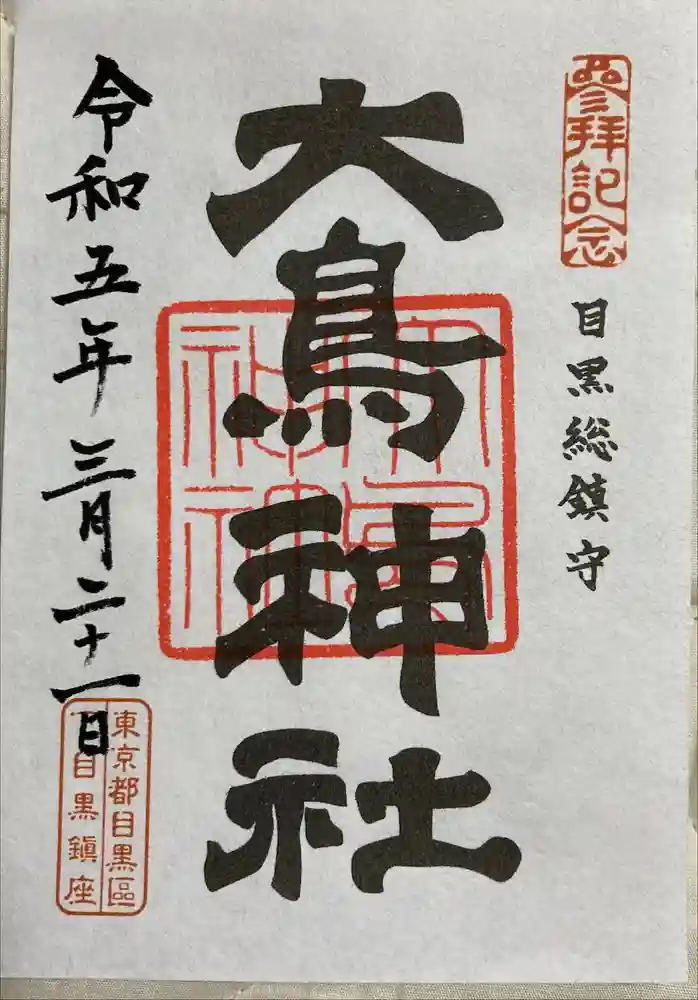 參拝記念
目黒総鎮守
大鳥神社
令和五年三月二十一日
東京都目黒區
目黒鎭座